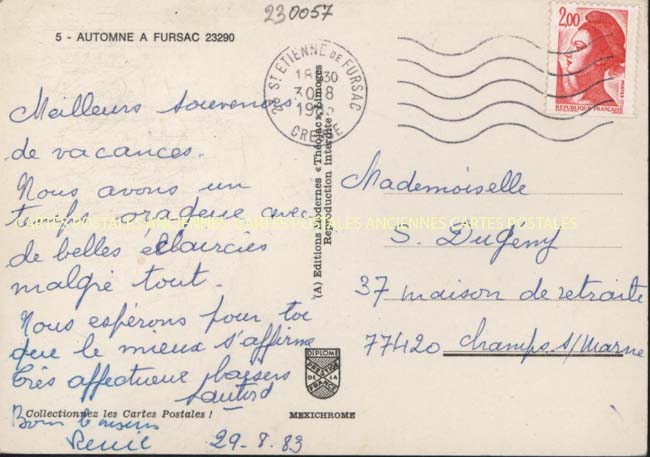 230057
5 - AUTOMNE A FURSAC 23290
ST ETIENNE DE FURSAC
30-8
CREUSE
2,00
REPUBLIQUE FRANÇAISE
Meilleurs souvenirs
de vacances.
Nous avons un
temps orageux avec
de belles éclaircies
malgré tout.
Nous espérons pour toi
que le mieux s'affirme
très affectueux baisers
Bons baisers
29-8-83
Collectionnez les Cartes Postales !
(A) Editions Modernes « Théojac » Limoges
Reproduction Interdite
DIPLOME
PRESTIGE
DE LA
FRANCE
MEXICHROME
Mademoiselle
S. Dugény
37 maison de retraite
77420 Champs s/ Marne
CARTES POSTALES ANCIENNES CARTES POSTALES ANCIENNES CARTES POSTALES